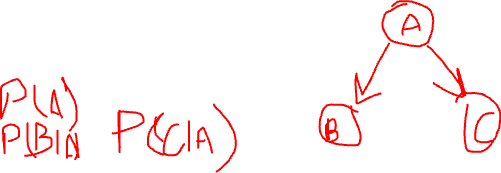 A
P(A)
P(B|A) P(C|A)
B C